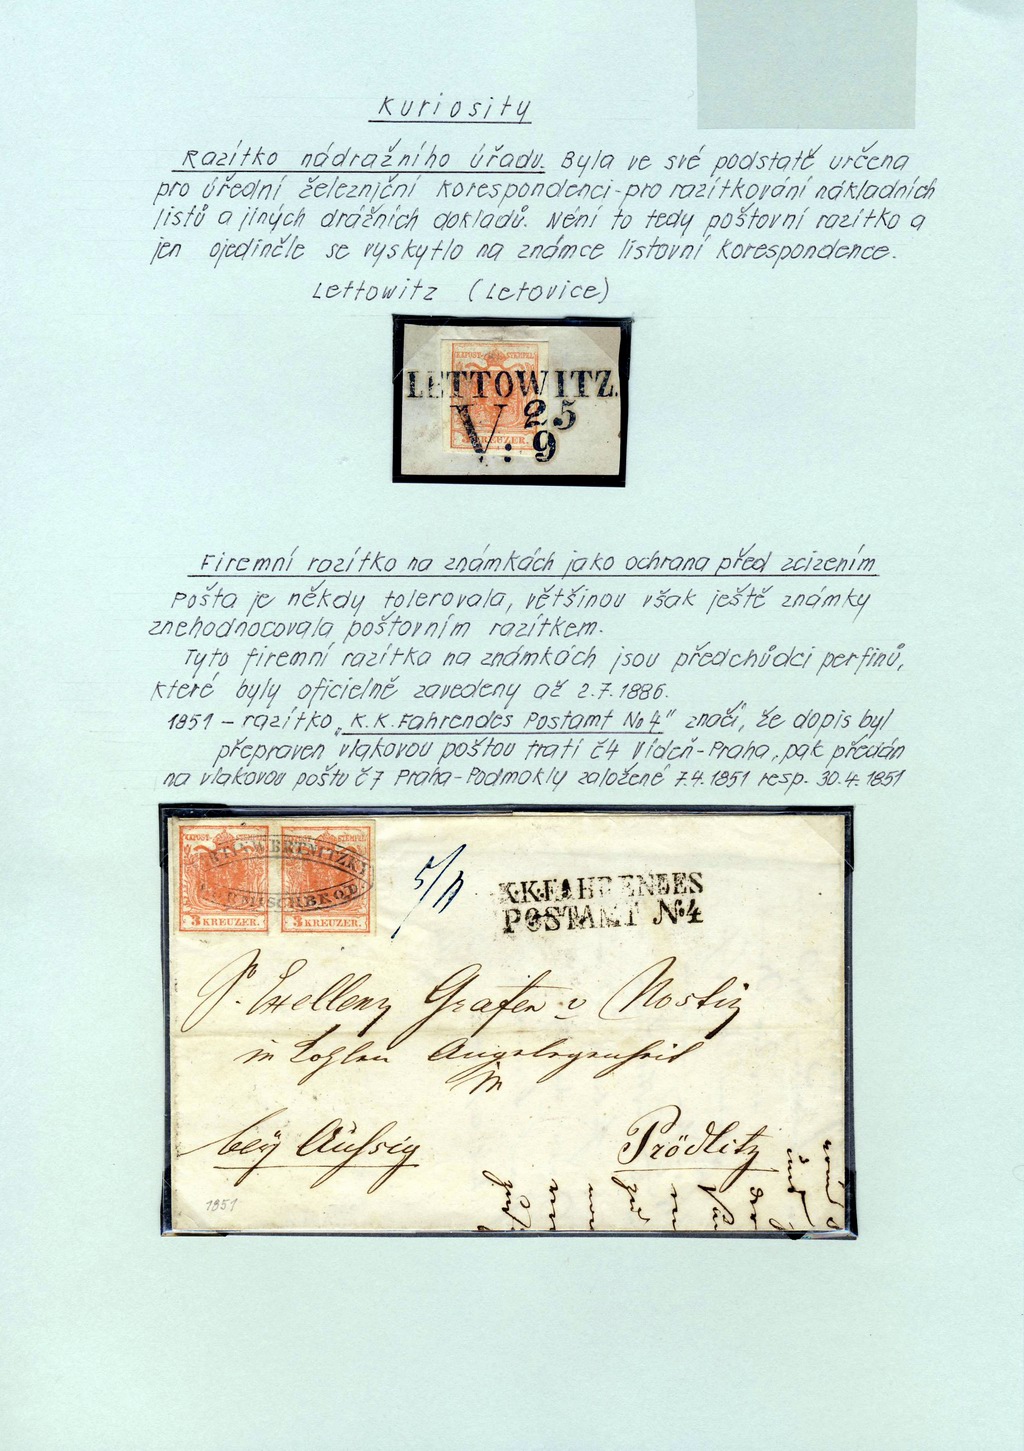 Kuriosity
Razítko nádražního úřadu. Byla ve své podstatě určena
pro úřední železniční korespondenci - pro razítkování nákladních
listů a jiných drážních dokladů. Není to tedy poštovní razítko a
jen ojediněle se vyskytlo na známce listovní korespondence.
Lettowitz (Letovice)
KKPOST-STEMPEL
LETTOWITZ.
25
V: 9
KREUZER.
Firemní razítko na známkách jako ochrana před zcizením
Pošta je někdy tolerovala, většinou však ještě známky
znehodnocovala poštovním razítkem.
Tyto firemní razítka na známkách jsou předchůdci perfinů,
které byly oficielně zavedeny až 2.7.1886.
1851 - razítko „K.K. Fahrendes Postamt No 4" značí, že dopis byl
přepraven vlakovou poštou tratí č4 Vídeň-Praha, pak předán
na vlakovou poštu č7 Praha-Podmokly založené 7.4.1851 resp. 30.4.1851
KKPOST-STEMPEL KKPOST-STEMPEL
3 KREUZER. 3 KREUZER.
5/11
K.K.FAHRENDES
POSTAMT No.4
Sr. Excellenz Grafen v Nostiz
in
bey Aussig
Prödlitz
1851